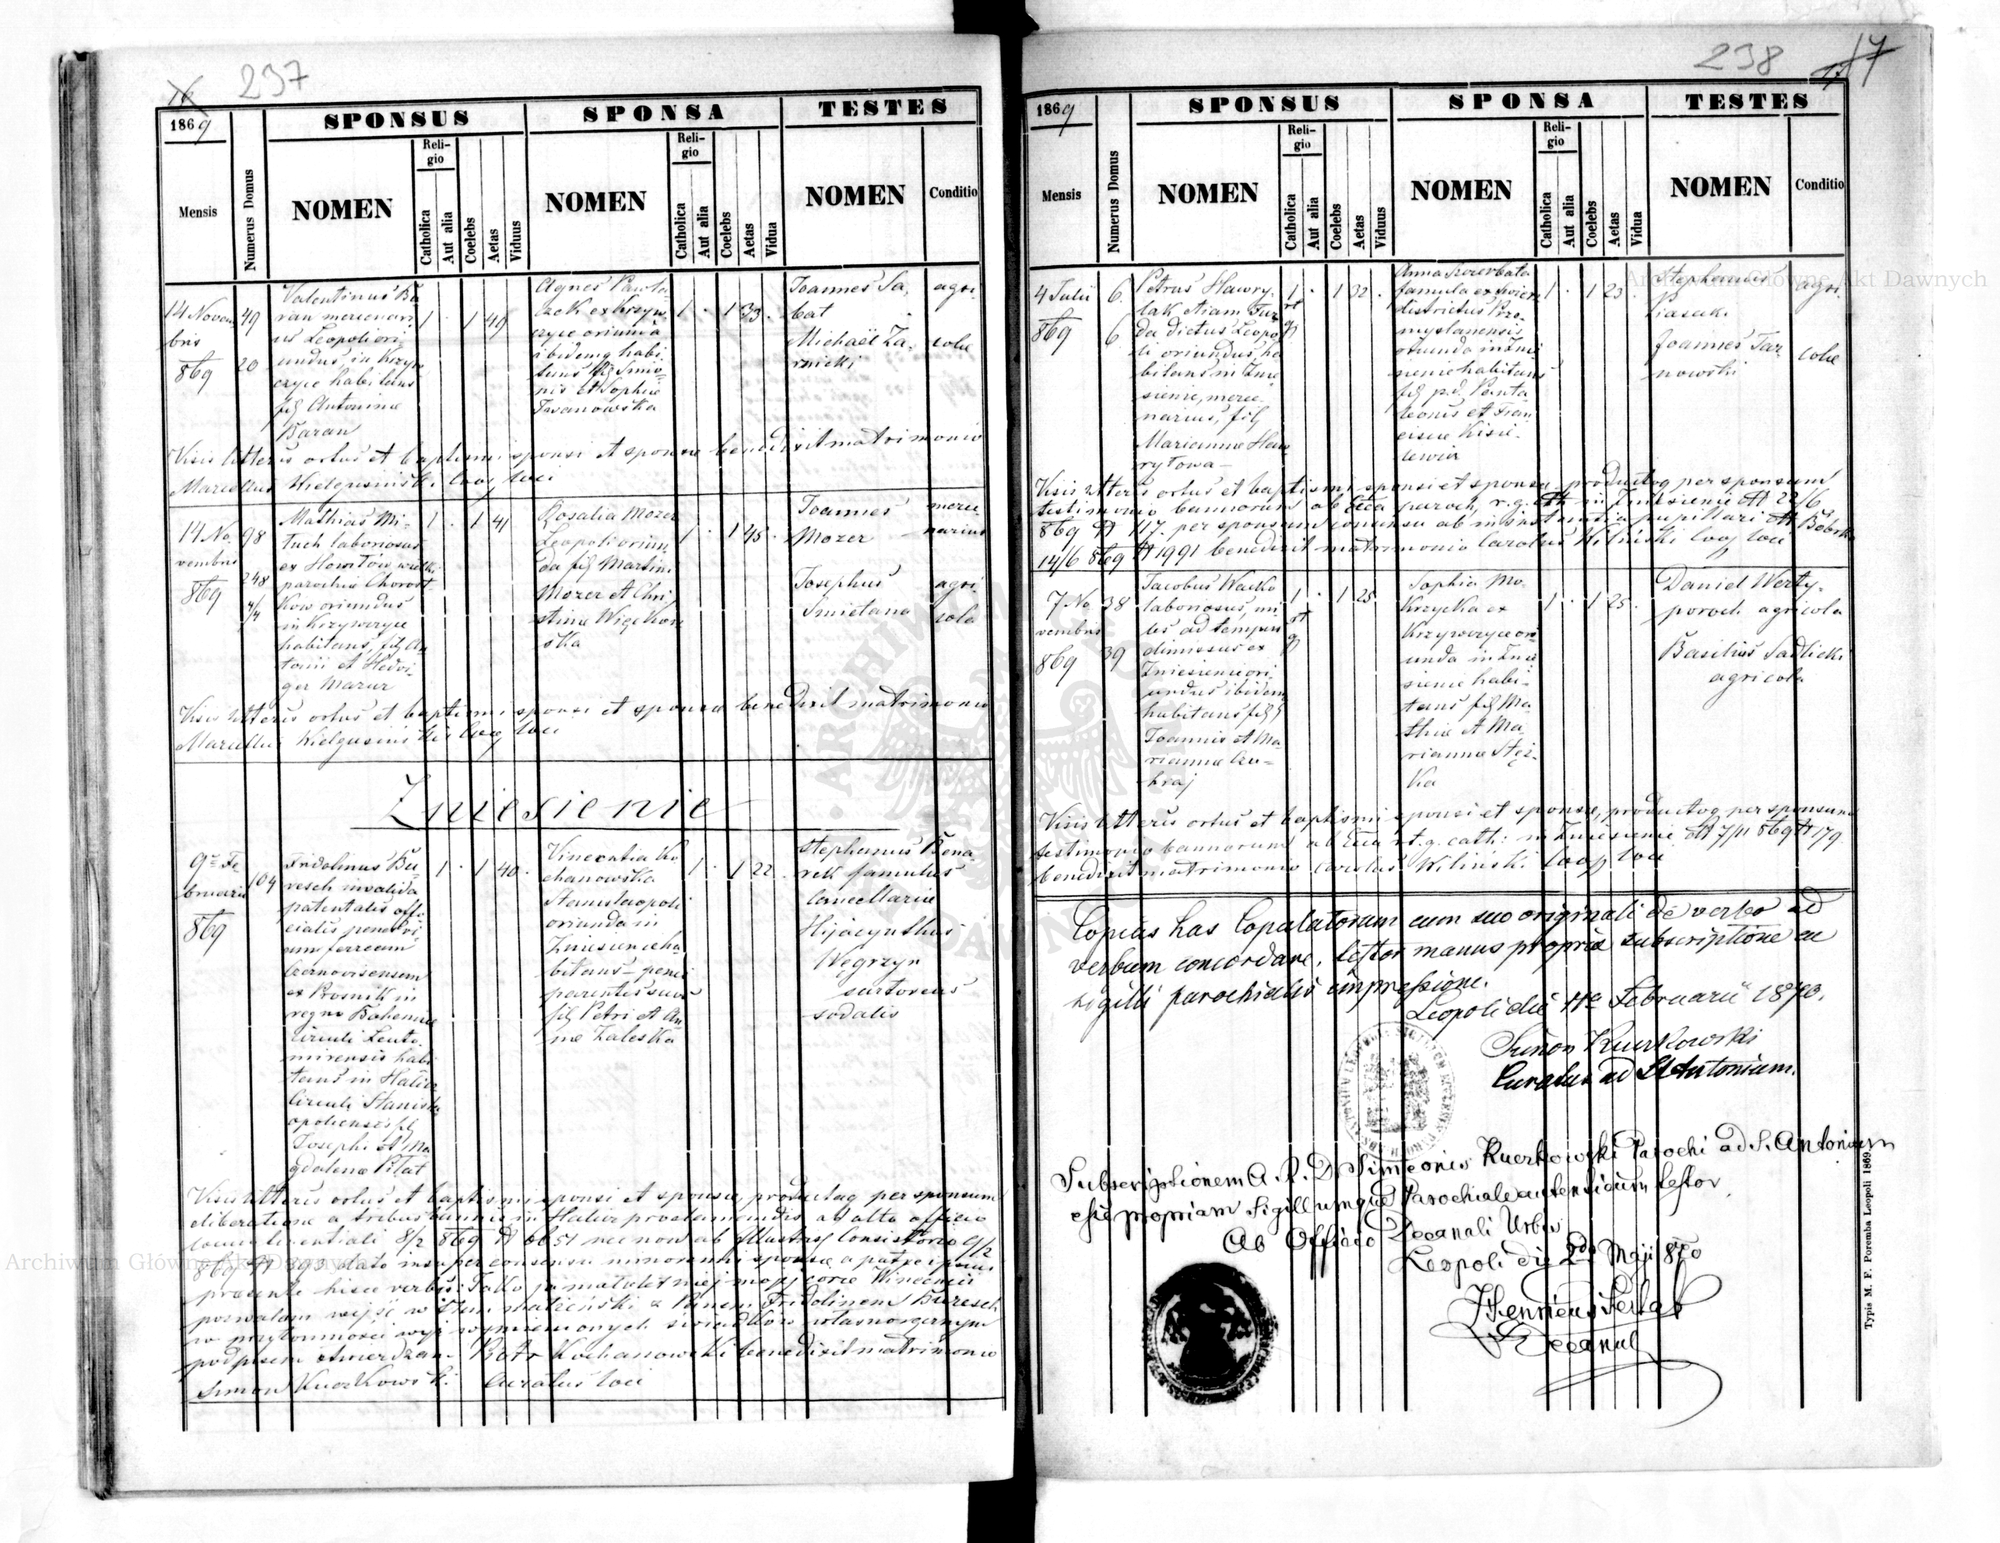 237
1869
SPONSUS
SPONSA
TESTES
Mensis
Numerus Domus
NOMEN
Religio
Catholica
Aut alia
Coelebs
Aetas
Viduus
NOMEN
Religio
Catholica
Aut alia
Coelebs
Aetas
Vidua
NOMEN
Conditio
14 Novem
bris
869
49
20
Valentinus Ba
ran mercenari
us Leopoli ori
undus, in Krzyw
czyce habitans
filg Antonina
Baran
1 . 1 49
Agnes Pawlo
ex Krzyw
czyce oriunda
ibidemq habi
tans filg Simo
nis et Sophia
Iwanowska
1 . 1 33 .
Joannes Sa
bat
Michael Za
rzicki
agri
colae
Visis litteris ortus et baptismi sponsi et sponsae benedixit matrimonio
Marcellus Kielgusinski Coop loci
14 No
vembris
869
98
248
4/4
Mathias Mi
tuch laboriosus
ex Howilow wielki
parochia Chorost
kow oriundus
in Krzywczyce
habitans, filg An
tonii et Hedvi
gis Mazur
1 . 1 41
Rosalia Mozer
Leopoli oriun
da filg Martini
Mozer et Chri
stina Wigckow
ska
1 . 1 45 .
Joannes
Mozer
Josephus
Smietana
merce
narius
agri
cola
Visis litteris ortus et baptismi sponsi et sponsae benedixit matrimonio
Marcellus Kielgusinski Coop loci
Zniesienie
9 Fe
bruarii
869
104
Fridolinus Bu
resch invalida
patentalis offi
cialis penes vi
am ferream
Czernoviensem
ex Prosnik in
regno Bohemiae
Circuli Leuto
mirensis habi
tans in Halicz
Circuli Stanisla
opoliensis filg
Josephi et Ma
gdalenae Pitat
1 . 1 40 .
Vincentia Ko
chanowska
Stanislaopoli
oriunda in
Zniesienie ha
bitans penes
parentes suos
filg Petri et An
nae Zaleska
1 . 1 22 .
Stephanus Bena
rek famulus
Cancellariae
Hijacynthus
Wegrzyn
sartorius
sodalis
Visis litteris ortus et baptismi sponsi et sponsae, productaq per sponsum
deliberatione a tribus bannis in Halicz proclamandis ab alto officio
8/2 869 N 6651 nec non ab Illustris Consistorio 9/2
869 N 393 dato insuper consensu minorenni sponsae a patre ipsius
praesente hisce verbis: Jako ja małoletniej mojej corce Wincencii
pozwalam wejść w stan małżeński z Panem Fridolinem Buresch
w przytomności wyż wymienionych świadków własnoręcznym
podpisem stwierdzam Piotr Kochanowski benedixit matrimonio
Simon Kuczkowski Curatus loci
238
17
1869
SPONSUS
SPONSA
TESTES
Mensis
Numerus Domus
NOMEN
Religio
Catholica
Aut alia
Coelebs
Aetas
Viduus
NOMEN
Religio
Catholica
Aut alia
Coelebs
Aetas
Vidua
NOMEN
Conditio
4 Julii
869
6
6
Petrus Hawry
lak etiam Fur
da dictus Leopo
li oriundus ha
bitans in Znie
sienie, merce
narius, filg
Mariannae Haw
rytowa
1 . 1 32 .
Anna Szczerbata
famula ex Swierz
districtus Prze
myslanensis
oriunda in Znie
sienie habitans
filg p.d. Panta
leonis et Fran
ciscae Kisie
lewicz
1 . 1 23 .
Stephanus
Piasecki
Joannes Tar
nowski
agri
colae
Visis litteris ortus et baptismi sponsi et sponsae, productoq per sponsum
testimonio bannorum ab Ecca paroch. r. g. cth in Zniesienie dt 22/6
869 N 147 per sponsum consensu ab instantia pupillari dt Bobrka
14/6 869 N 1991 benedixit matrimonio Carolus Wilinski Coop loci
7 No
vembris
869
38
39
Jacobus Wacko
laboriosus, mi
les ad tempus
dimissus ex
Zniesienie ori
undus ibidem
habitans filg
Joannis et Ma
riannae Cu
kraj
1 . 1 25
Sophia Mo
krzycka ex
Krzywczyce ori
unda in Znie
sienie habi
tans filg Ma
thiae et Ma
riannae Stez
ka
1 . 1 25 .
Daniel Werty
poroch agricola
Basilius Sadlicki
agricola
Visis litteris ortus et baptismi sponsi et sponsae, productoq per sponsum
testimonio bannorum ab Ecca rt. g. cath: in Zniesienie dt 7/11 869 N 179
benedixit matrimonio Carolus Wilinski Coop loci
Copias has Copulatorum cum suo originali de verbo ad
verbum concordare, testor manus propriae subscriptione ac
sigilli parochialis impressione.
Leopoli die 11a Februarii 1870.
Simon Kuczkowski
Curatus ad S Antonium.
Subscriptionem A. R. D. Simeonis Kuczkowski Parochi ad S. Antonium
esse propriam Sigillumque Parochiale autenticum testor.
Ab Officio Decanali Urbis
Leopoli die 2da Maji 870
Henricus
Decanus
Typis M. F. Poremba Leopoli 1869.
Archiwum Główne Akt Dawnych
Archiwum Główne Akt Dawnych